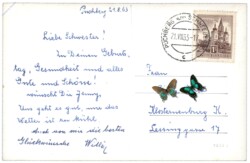 Puchberg 21.8.63
Liebe Schwester!
Zu Deinem Geburts-
tag, Gesundheit und alles
Gute und Schöne!
wünscht Dir Jenny.
Uns geht es gut, nur das
Wetter ist
von mir die besten
Glückwünsche Willi
Frau
Klosterneuburg
Lessinggasse 17